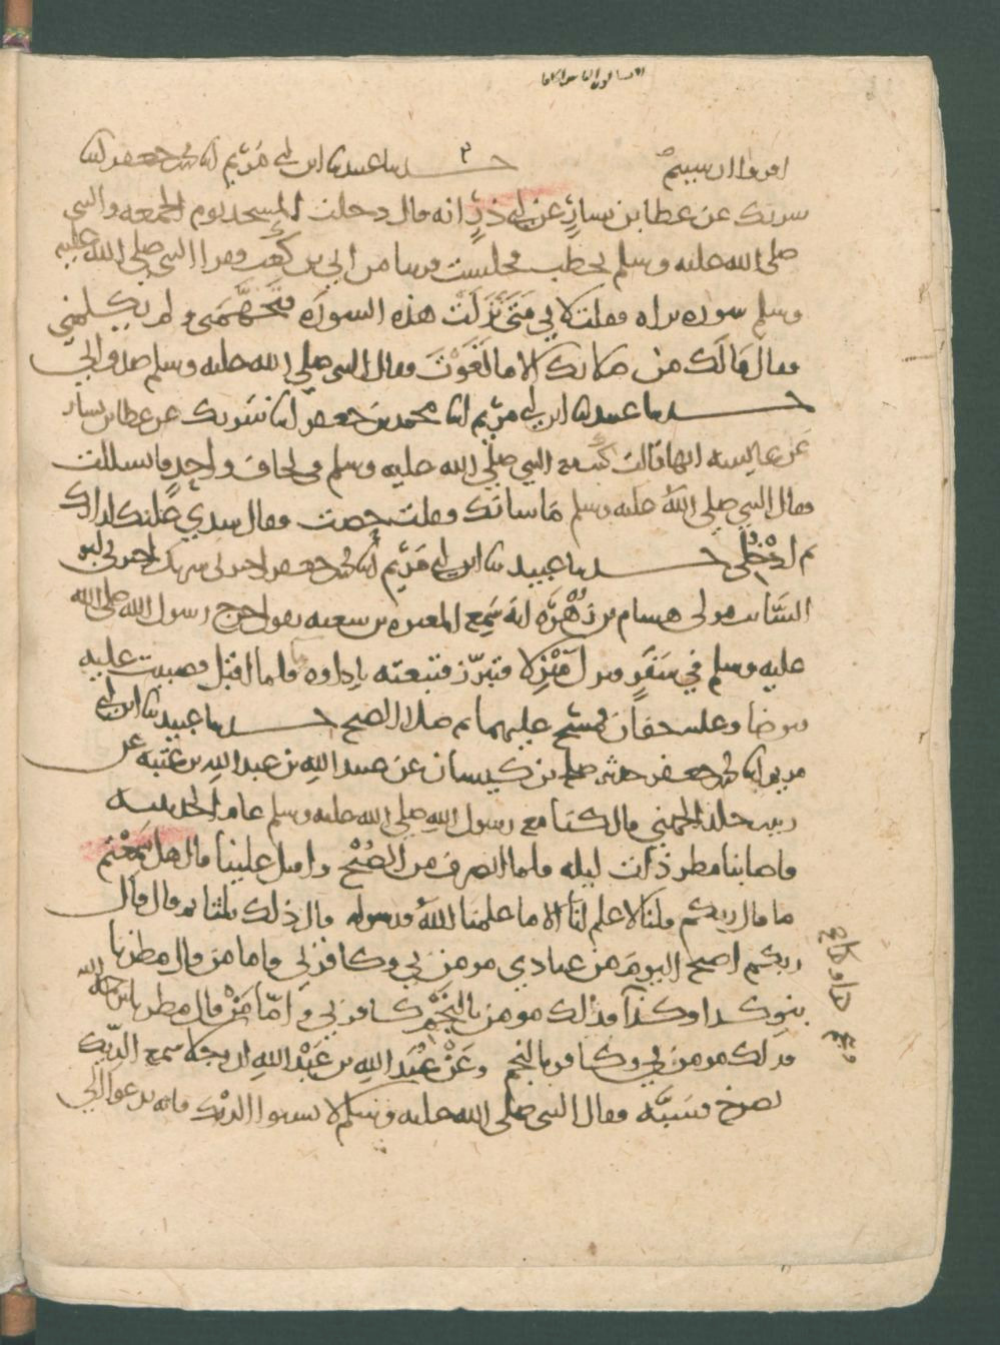 اقروا ان سيتم حدثنا عبيد نا ابن ابي مريم انا محمد بن جعفر انا
شريك عن عطا بن يسار عن ابي ذر انه قال دخلت المسجد يوم الجمعه والنبي
صلى الله عليه وسلم يخطب فجلست قريبا من ابي بن كعب وقرا النبي صلى الله عليه
وسلم سوره براه فقلت لابي متى نزلت هذه السوره فتجهمني ولم يكلمني
فقال مالك من صلاتك الا ما لغوت فقال النبي صلى الله عليه وسلم صدق ابي
حدثنا عبيد نا ابن ابي مريم انا محمد بن جعفر انا شريك عن عطا بن يسار
عن عايشه انها قالت كنت مع النبي صلى الله عليه وسلم في لحاف واحد فانسللت
فقال النبي صلى الله عليه وسلم ما شانك فقلت حضت فقال شدي عليك ازارك
ثم ادخلي حدثنا عبيد نا ابن ابي مريم انا محمد بن جعفر اخبرني شريك اخبرني ابو
السائب مولى هشام بن زهره انه سمع المغيره بن شعبه يقول خرج رسول الله صلى الله
عليه وسلم في سفر فنزل منزلا فتبرز فتبعته باداوه فلما اقبل فصببت عليه
فتوضا وعليه خفان فمسح عليهما ثم صلى الصبح حدثنا عبيد نا ابن ابي
مريم انا محمد بن جعفر حدثني صالح بن كيسان عن عبيد الله بن عبد الله بن عتبه عن
زيد بن خلد الجهني قال كنا مع رسول الله صلى الله عليه وسلم عام الحديبيه
فاصابنا مطر ذات ليله فلما انصرف من الصبح واقبل علينا قال هل سمعتم
ما قال ربكم قلنا لا علم لنا الا ما علمنا الله ورسوله قال ذلك ثلثا ثم قال قال
ربكم اصبح اليوم من عبادي مومن بي وكافر بي فاما من قال مطرنا
بنو كذا وكذا فذلك مومن بالنجم كافر بي واما من قال مطر نا برحمه الله
فذلك مومن بي وكافر بالنجم وعن عبيد الله بن عبد الله ان رجلا سمع الديك
يصرخ فسبه فقال النبي صلى الله عليه وسلم لا تسبوا الديك فانه يدعوا الى